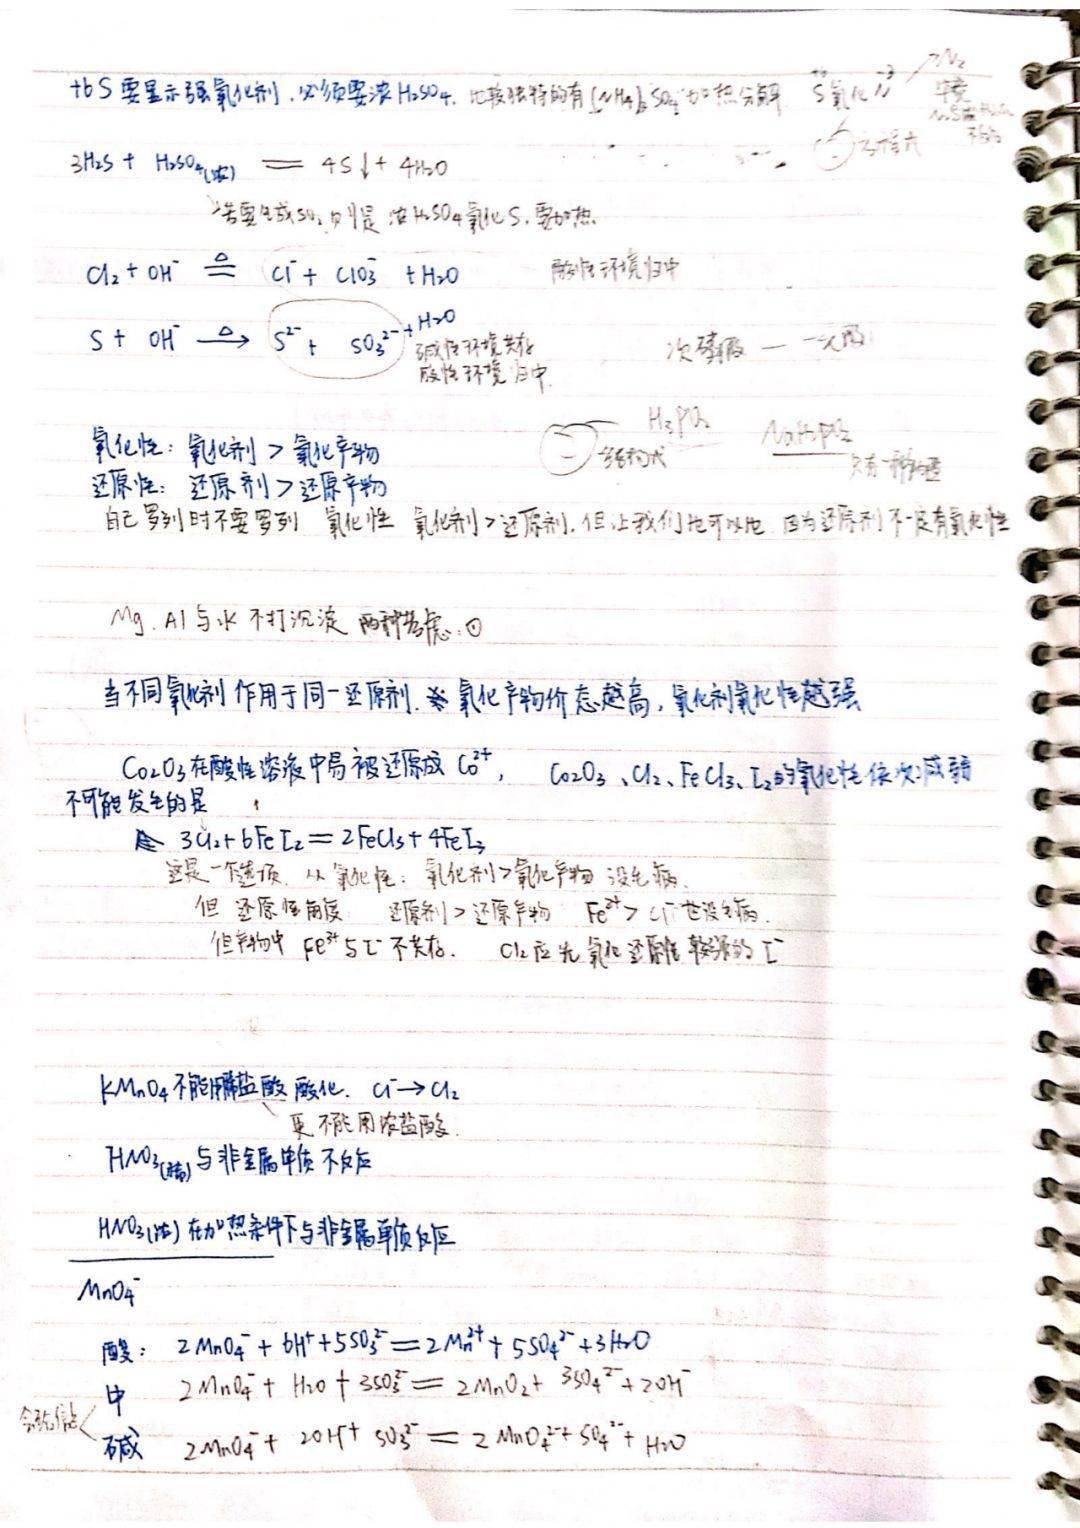 +6 S 要显示强氧化剂，必须要浓H₂SO₄. 比较独特的有(NH₄)₂SO₄加热分解 +6 S氧化 -3 N → N₂
方程式
3H₂S + H₂SO₄(浓) == 4S↓ + 4H₂O
若要生成SO₂, 则是浓H₂SO₄氧化S, 要加热.
Cl₂ + OH⁻ ≜ Cl⁻ + ClO₃⁻ + H₂O 酸性环境归中
S + OH⁻ —△→ S²⁻ + SO₃²⁻ + H₂O
碱性环境共存
酸性环境归中.
次磷酸 — 一元酸
H₃PO₂ NaH₂PO₂
结构式
氧化性：氧化剂 > 氧化产物
还原性：还原剂 > 还原产物
自己罗列时不要罗列 氧化性 氧化剂>还原剂. 但让我们比可以比 因为还原剂不一定有氧化性
Mg. Al与水 不打沉淀 两种考虑.
当不同氧化剂作用于同一还原剂. 氧化产物价态越高, 氧化剂氧化性越强
Co₂O₃在酸性溶液中易被还原成Co²⁺, Co₂O₃、Cl₂、FeCl₃、I₂的氧化性依次减弱
不可能发生的是
3Cl₂+6FeI₂=2FeCl₃+4FeI₃
这是一个选项. 从氧化性：氧化剂>氧化产物 没毛病.
但 还原性角度 还原剂>还原产物 Fe²⁺> Cl⁻也没毛病.
但产物中 Fe³⁺与I⁻不共存. Cl₂应先氧化还原性较强的I⁻
KMnO₄不能用稀盐酸酸化. Cl⁻→Cl₂
更不能用浓盐酸.
HNO₃(稀)与非金属单质不反应
HNO₃(浓)在加热条件下与非金属单质反应
MnO₄⁻
酸： 2MnO₄⁻ + 6H⁺+5SO₃²⁻=2Mn²⁺+5SO₄²⁻+3H₂O
中 2MnO₄⁻+ H₂O + 3SO₃²⁻= 2MnO₂+ 3SO₄²⁻+2OH⁻
碱 2MnO₄⁻+ 2OH⁻+ SO₃²⁻ = 2MnO₄²⁻+SO₄²⁻+H₂O